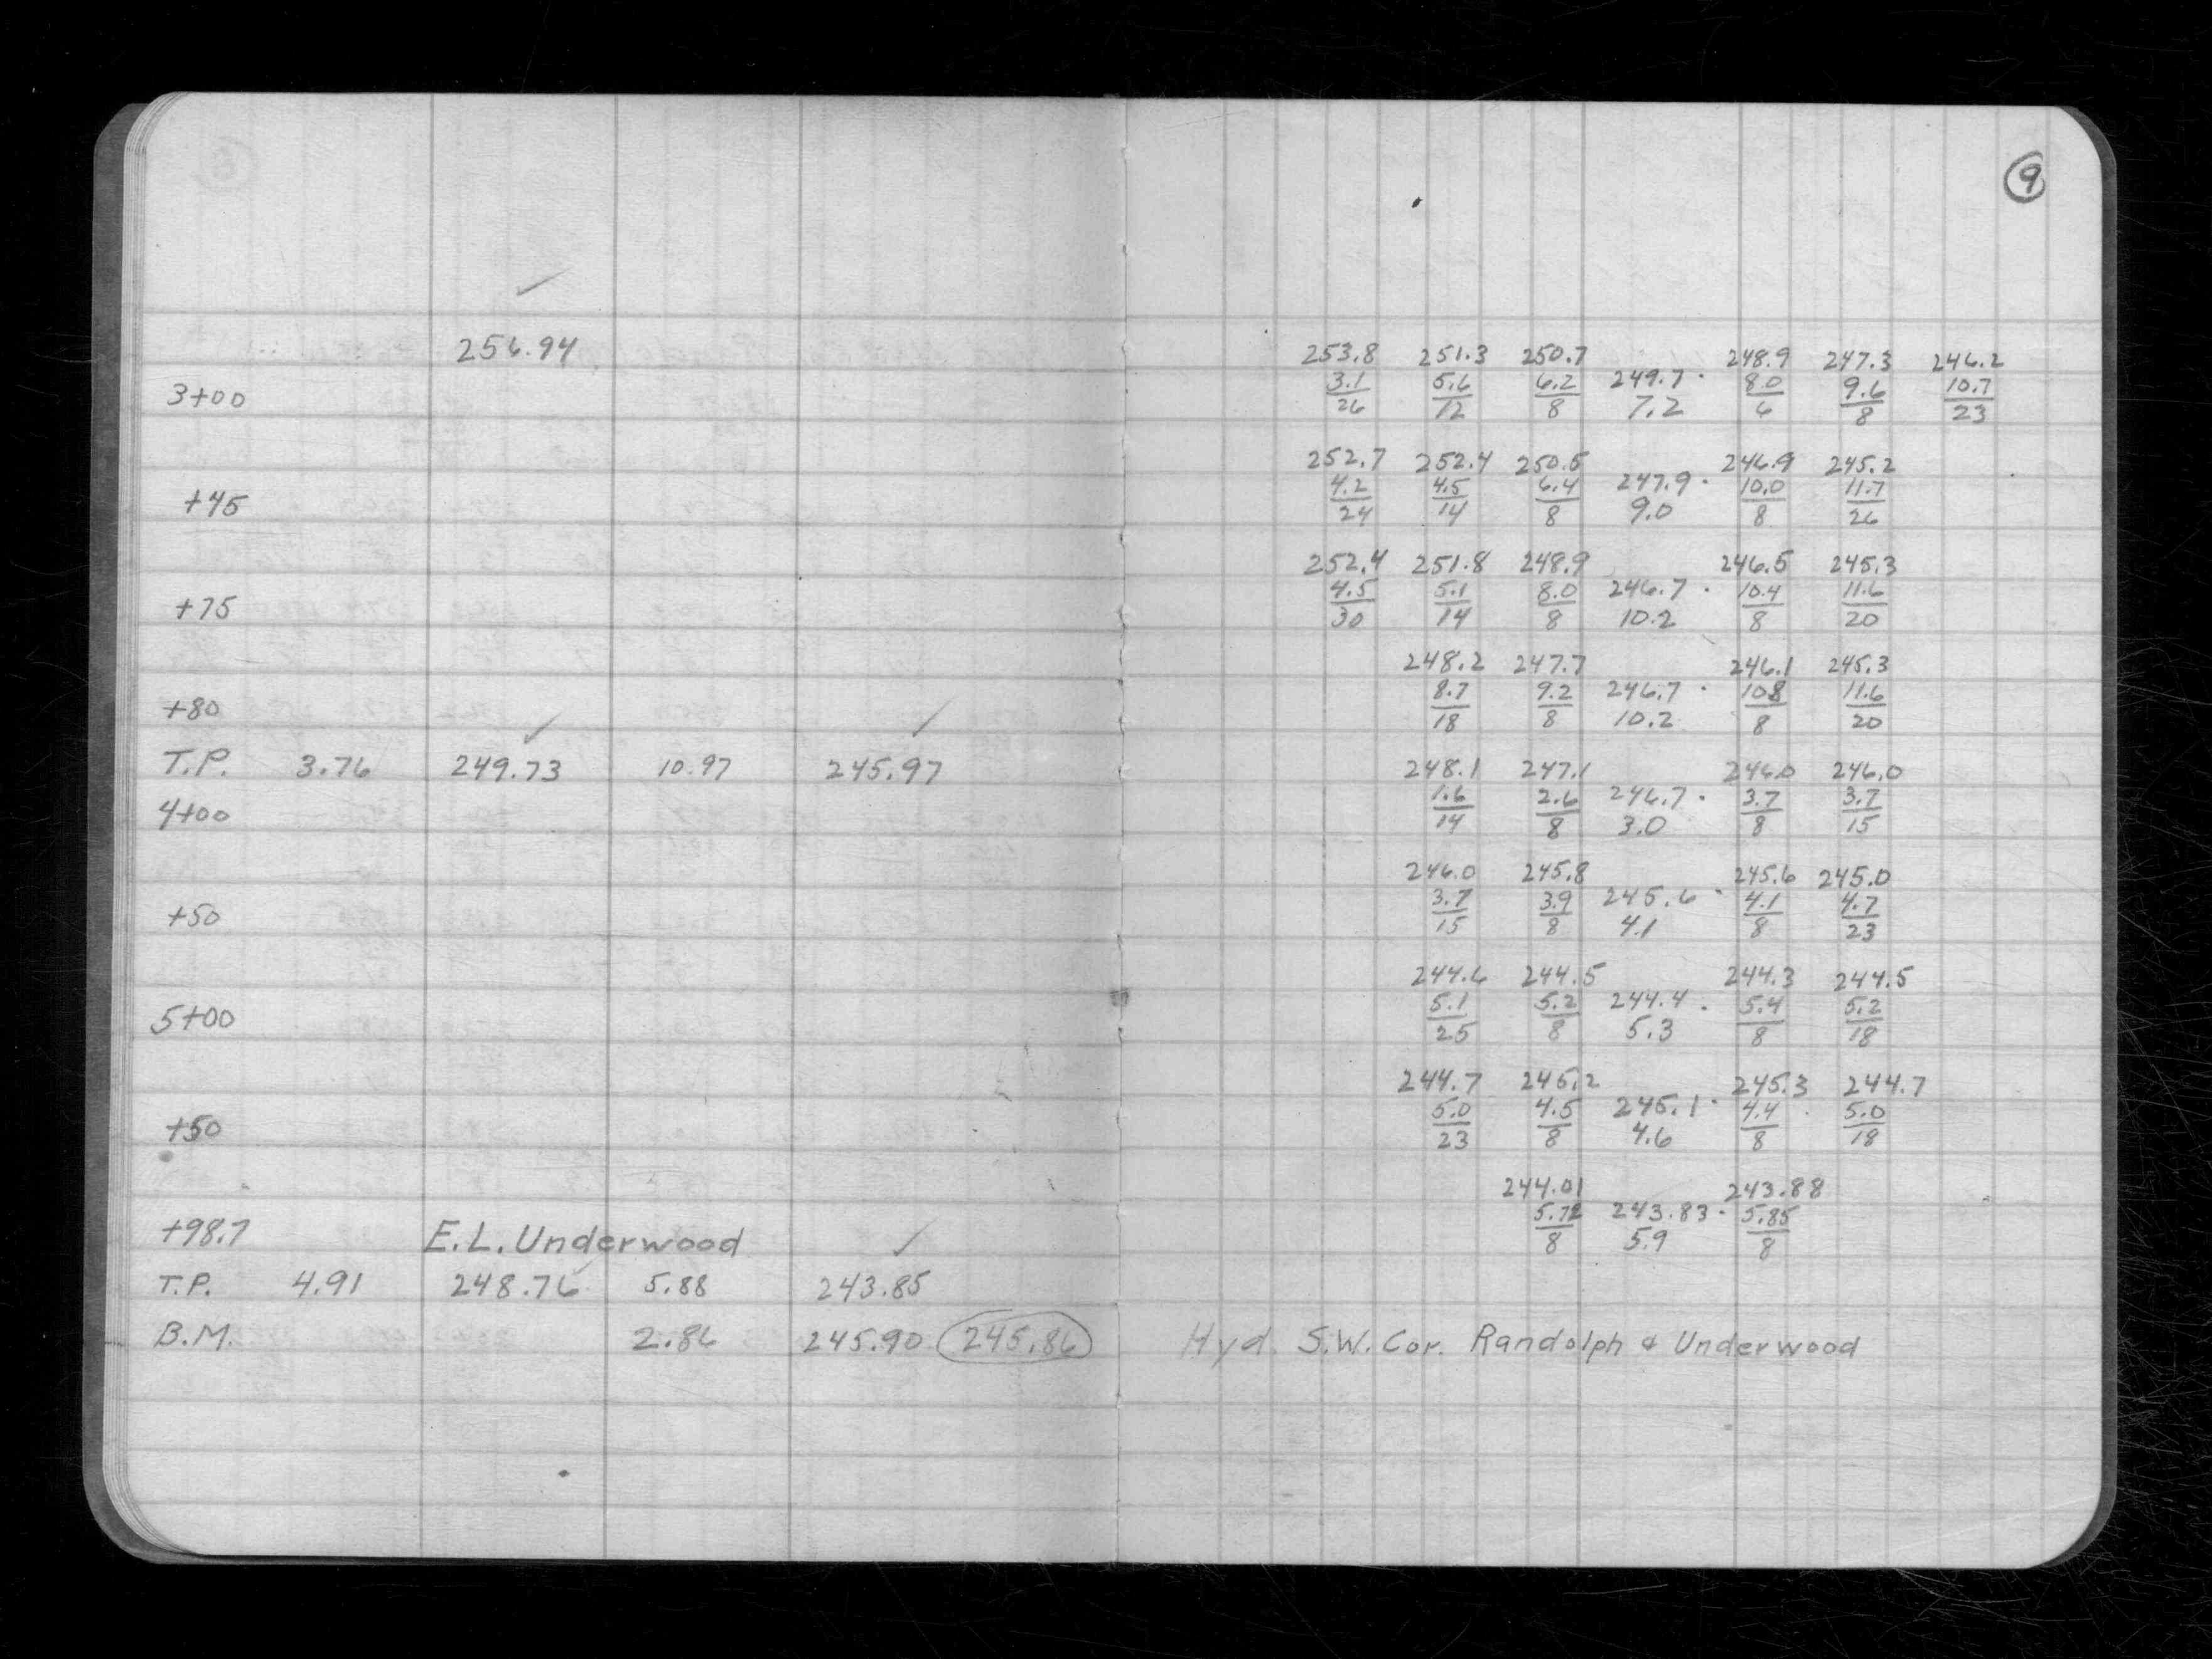 9
256.94
253.8 251.3 250.7 248.9 247.3 246.2
3.1 5.6 6.2 249.7 · 8.0 9.6 10.7
3+00 26 12 8 7.2 6 8 23
252.7 252.4 250.5 246.9 245.2
4.2 4.5 6.4 247.9 · 10.0 11.7
+45 24 14 8 9.0 8 26
252.4 251.8 248.9 246.5 245.3
4.5 5.1 8.0 246.7 · 10.4 11.6
+75 30 14 8 10.2 8 20
248.2 247.7 246.1 245.3
8.7 9.2 246.7 · 10.8 11.6
+80 18 8 10.2 8 20
T.P. 3.76 249.73 10.97 245.97 248.1 247.1 246.0 246.0
1.6 2.6 246.7 · 3.7 3.7
4+00 14 8 3.0 8 15
246.0 245.8 245.6 245.0
3.7 3.9 245.6 · 4.1 4.7
+50 15 8 4.1 8 23
244.6 244.5 244.3 244.5
5.1 5.2 244.4 · 5.4 5.2
5+00 25 8 5.3 8 18
244.7 245.2 245.3 244.7
5.0 4.5 245.1 · 4.4 5.0
+50 23 8 4.6 8 18
244.01 243.88
5.72 243.83 · 5.85
+98.7 E.L. Underwood 8 5.9 8
T.P. 4.91 248.76 5.88 243.85
B.M. 2.86 245.90 245.86 Hyd. S.W. Cor. Randolph & Underwood